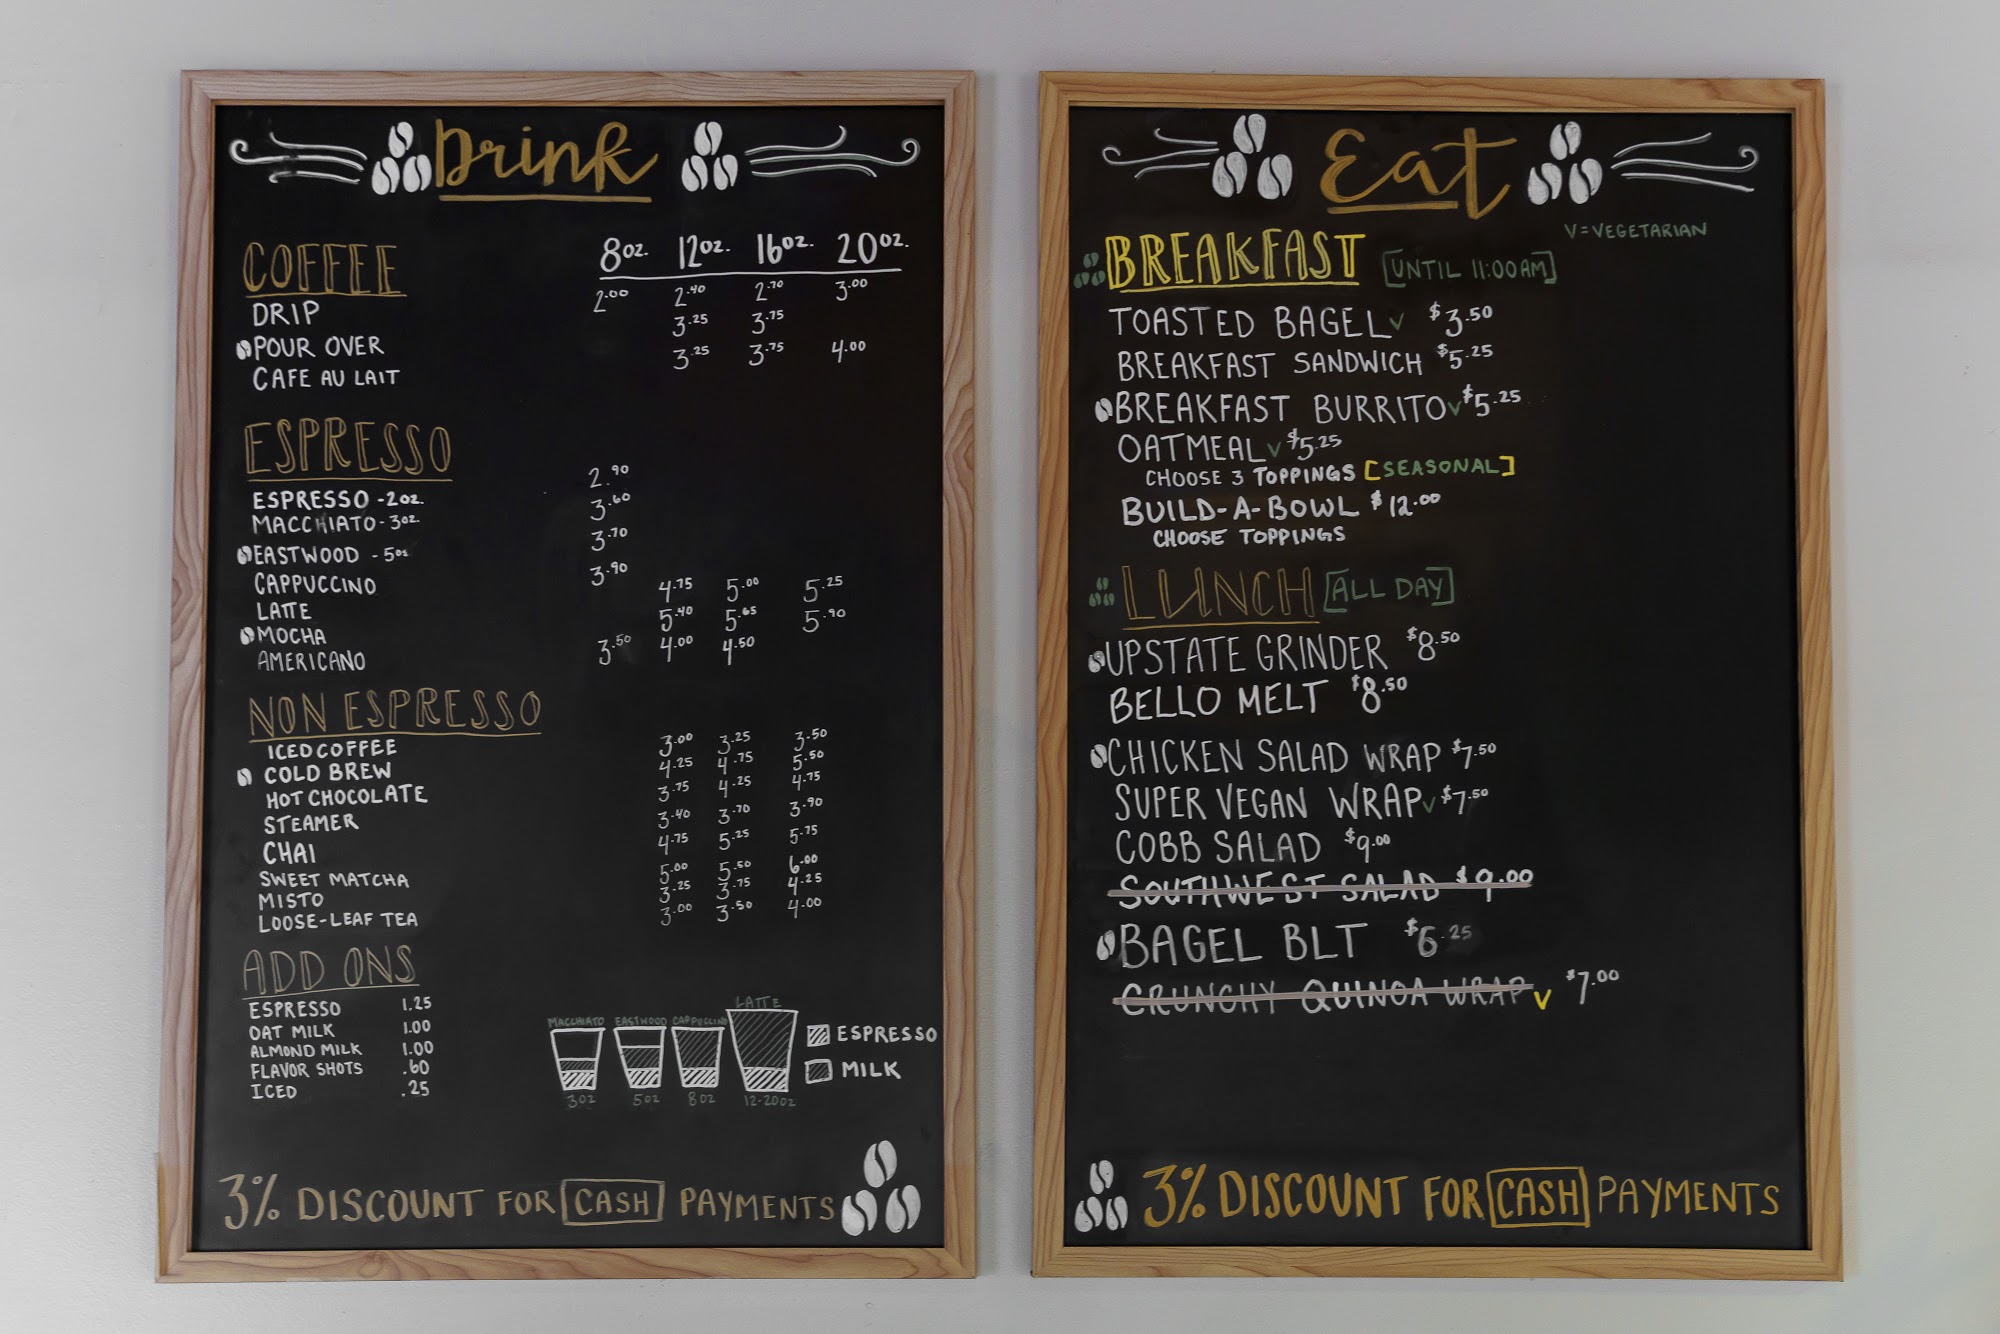 Drink
COFFEE 8oz. 12oz. 16oz. 20oz.
DRIP 2.00 2.40 2.70 3.00
POUR OVER 3.25 3.75
CAFE AU LAIT 3.25 3.75 4.00
ESPRESSO
ESPRESSO - 2oz. 2.90
MACCHIATO - 3oz. 3.60
EASTWOOD - 5oz 3.70
CAPPUCCINO 3.90
LATTE 4.75 5.00 5.25
MOCHA 5.40 5.65 5.90
AMERICANO 3.50 4.00 4.50
NON ESPRESSO
ICED COFFEE 3.00 3.25 3.50
COLD BREW 4.25 4.75 5.50
HOT CHOCOLATE 3.75 4.25 4.75
STEAMER 3.40 3.70 3.90
CHAI 4.75 5.25 5.75
SWEET MATCHA 5.00 5.50 6.00
MISTO 3.25 3.75 4.25
LOOSE-LEAF TEA 3.00 3.50 4.00
ADD ONS
ESPRESSO 1.25
OAT MILK 1.00
ALMOND MILK 1.00
FLAVOR SHOTS .60
ICED .25
LATTE
MACCHIATO EASTWOOD CAPPUCCINO
ESPRESSO
MILK
3oz 5oz 8oz 12-20oz
3% DISCOUNT FOR CASH PAYMENTS
Eat
V=VEGETARIAN
BREAKFAST [UNTIL 11:00AM]
TOASTED BAGEL V $3.50
BREAKFAST SANDWICH $5.25
BREAKFAST BURRITO V $5.25
OATMEAL V $5.25
CHOOSE 3 TOPPINGS [SEASONAL]
BUILD-A-BOWL $12.00
CHOOSE TOPPINGS
LUNCH [ALL DAY]
UPSTATE GRINDER $8.50
BELLO MELT $8.50
CHICKEN SALAD WRAP $7.50
SUPER VEGAN WRAP V $7.50
COBB SALAD $9.00
SOUTHWEST SALAD $9.00
BAGEL BLT $6.25
CRUNCHY QUINOA WRAP V $7.00
3% DISCOUNT FOR CASH PAYMENTS